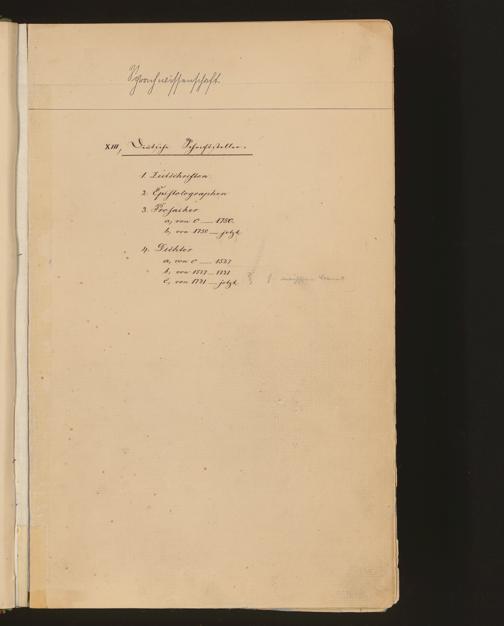 Sprachwissenschaft
XIII, Deutsche Schriftsteller.
1. Zeitschriften
2. Epistolographen
3. Prosaiker
a, von 0 — 1750.
b, von 1750 — jetzt
4. Dichter
a, von 0 — 1527
b, von 1527 — 1721
c, von 1721 — jetzt